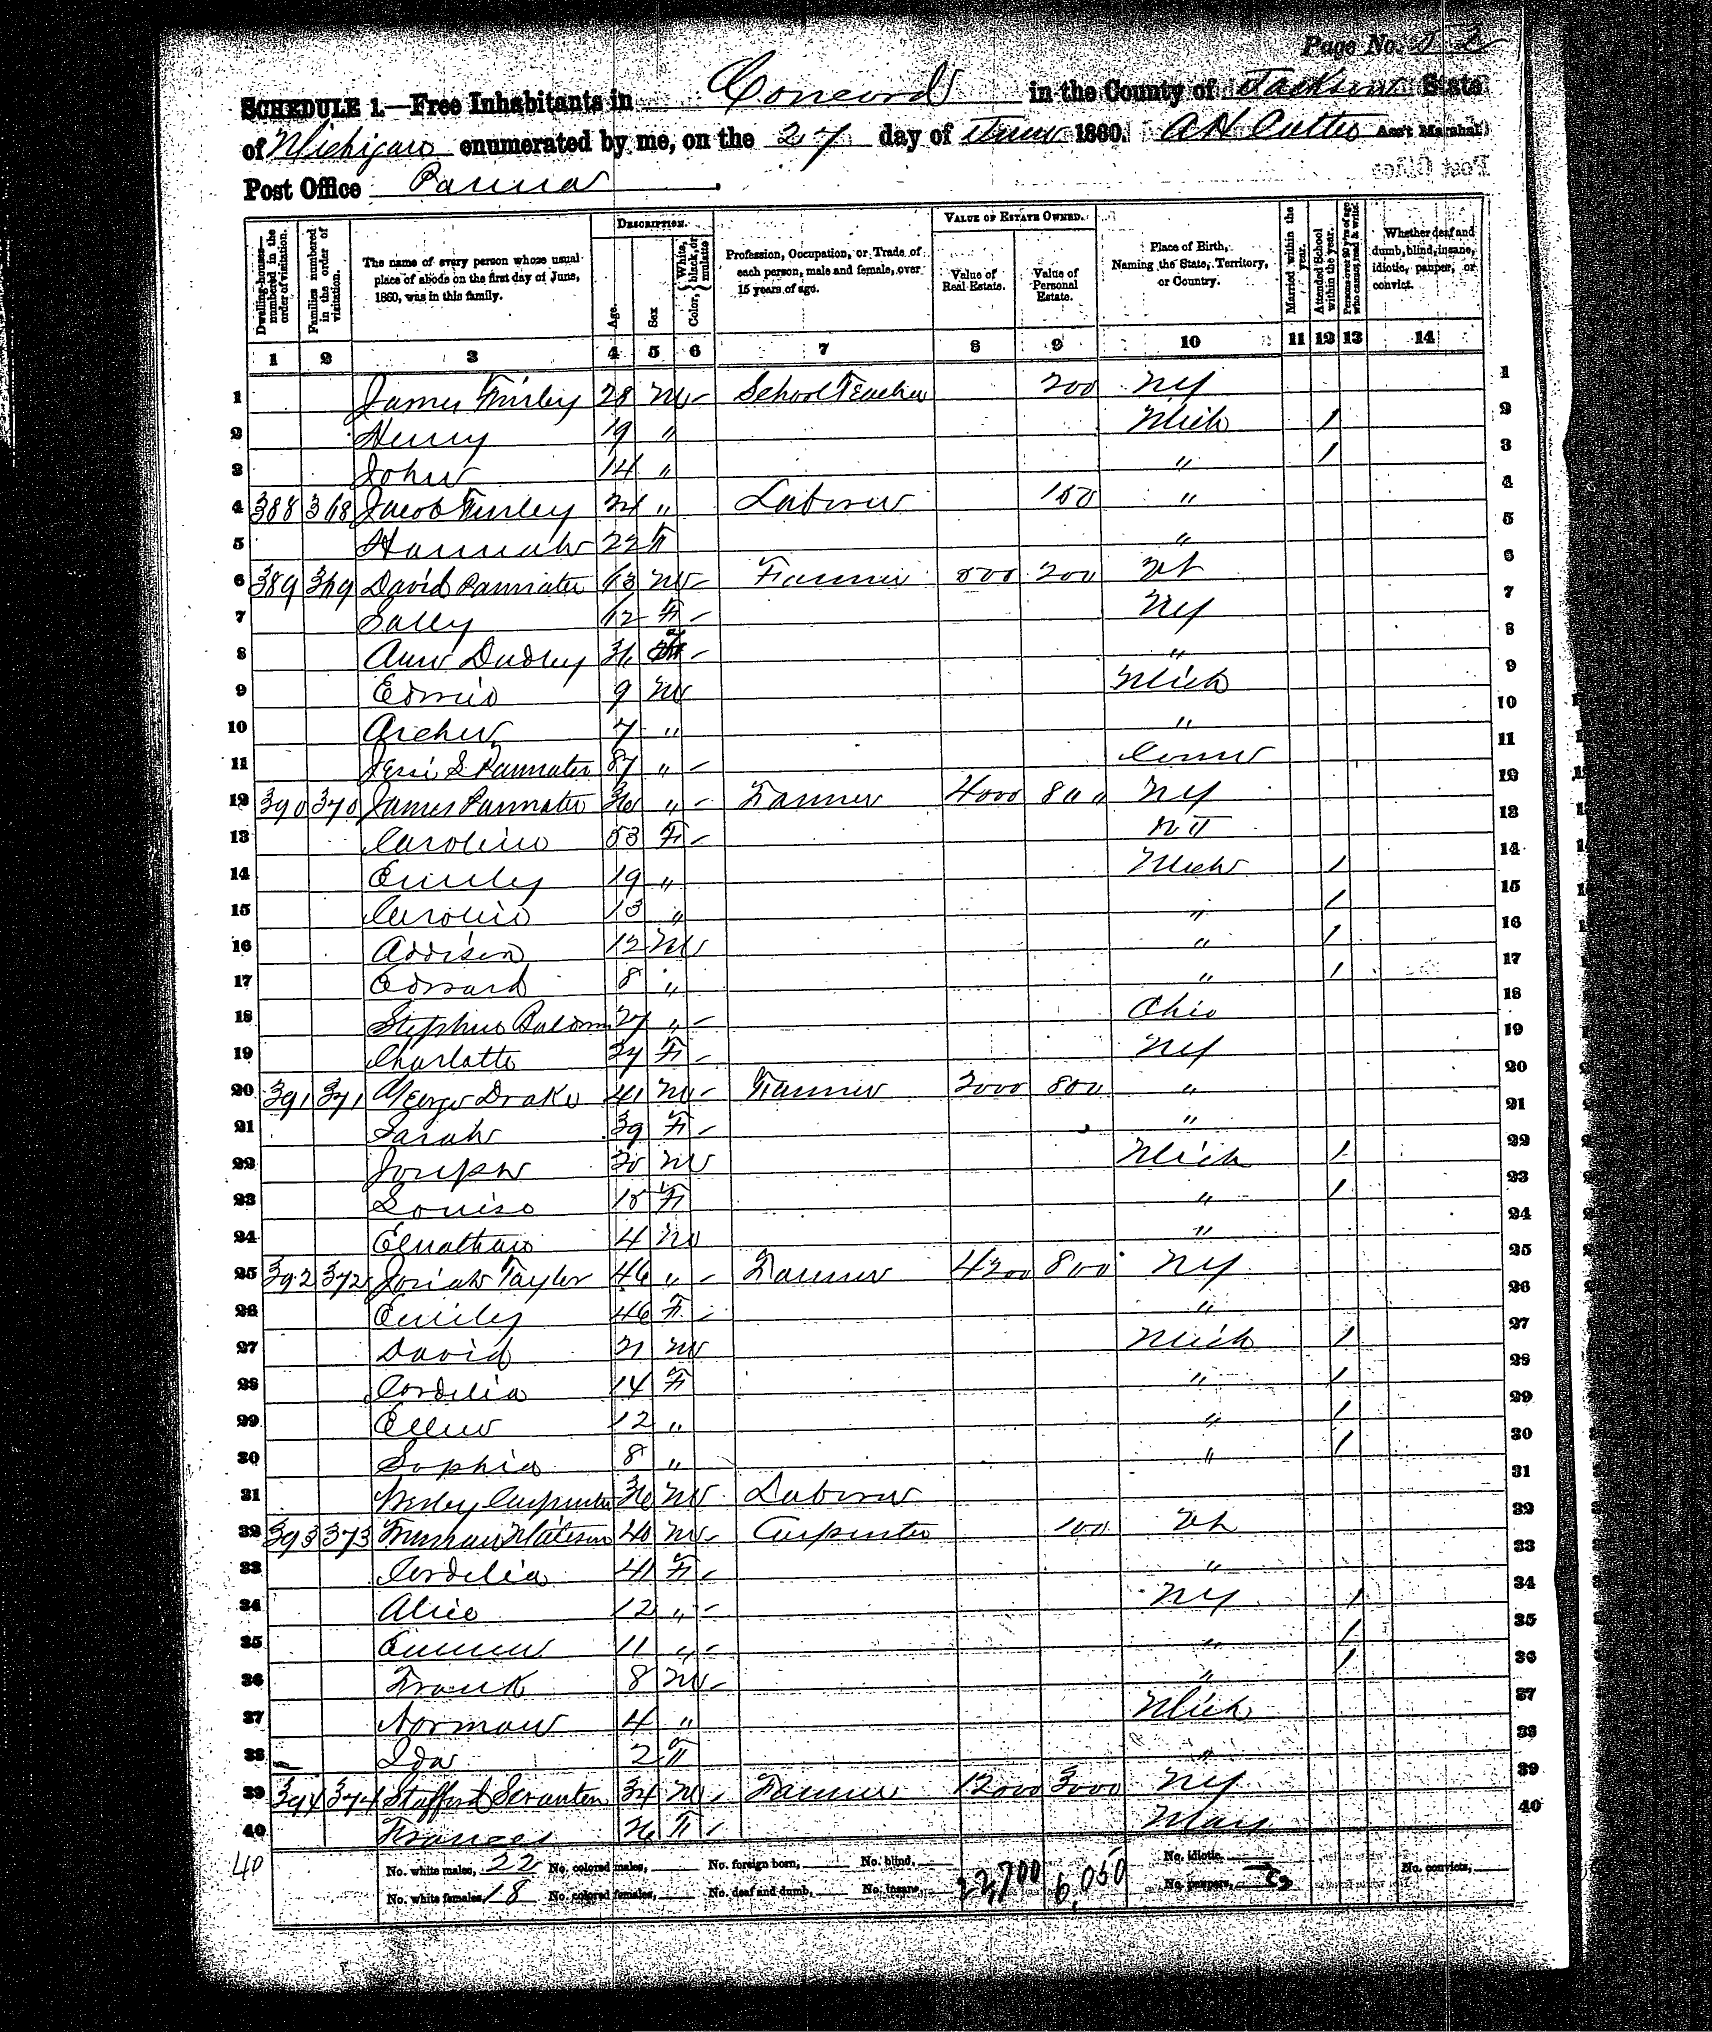 Page No. 52
SCHEDULE 1.—Free Inhabitants in Concord in the County of Jackson State
of Michigan enumerated by me, on the 27 day of June 1860. A H Cutter Ass't Marshal.
Post Office Parma
DESCRIPTION. VALUE OF ESTATE OWNED.
Dwelling-houses—numbered in the order of visitation. Families numbered in the order of visitation. The name of every person whose usual place of abode on the first day of June, 1860, was in this family. Age. Sex Color, {White, black, or mulatto. Profession, Occupation, or Trade of each person, male and female, over 15 years of age. Value of Real Estate. Value of Personal Estate. Place of Birth, Naming the State, Territory, or Country. Married within the year. Attended School within the year. Persons over 20 y'rs of age who cannot read & write. Whether deaf and dumb, blind, insane, idiotic, pauper, or convict.
1 2 3 4 5 6 7 8 9 10 11 12 13 14
1 James 28 M School Teacher 200 NY 1
2 Henry 19 " Mich 1 2
3 John 14 " " 1 3
4 388 368 Jacob 24 " Laborer 150 " 4
5 Hannah 22 F " 5
6 389 369 David Parmater 63 M Farmer 500 200 Vt 6
7 Sally 62 F NY 7
8 Ann Dudley 36 " 8
9 Edwin 9 M Mich 9
10 Archer 7 " " 10
11 S Parmater 87 " Conn 11
12 390 370 James Parmater 36 " Farmer 4000 800 NY 12
13 Caroline 53 F 13
14 Emily 19 " Mich 1 14
15 Caroline 13 " " 1 15
16 Addison 12 M " 1 16
17 Edward 8 " " 1 17
18 Stephen Baldwin 27 " Ohio 18
19 Charlotte 27 F NY 19
20 391 371 George Drake 41 M Farmer 2000 800 " 20
21 Sarah 39 F " 21
22 Joseph 20 M Mich 1 22
23 Louisa 15 F " 1 23
24 Elnathan 4 M " 24
25 392 372 Josiah Taylor 46 " Farmer 4200 800 NY 25
26 Emily 46 F " 26
27 David 21 M Mich 1 27
28 Cordelia 14 F " 1 28
29 Ellen 12 " " 1 29
30 Sophia 8 " " 1 30
31 Wesley Carpenter 36 M Laborer 31
32 393 373 Truman Mateson 40 M Carpenter 100 Vt 32
33 Cordelia 41 F " 33
34 Alice 12 " NY 1 34
35 Emma 11 " " 1 35
36 Frank 8 M " 1 36
37 Norman 4 " Mich 37
38 Ida 2 F " 38
39 394 374 Stafford Scranton 34 M Farmer 12000 3000 NY 39
40 Frances 26 F Mass 40
40 No. white males, 22 No. colored males, No. foreign born, No. blind, 22,700 6,050 No. idiotic,
No. white females, 18 No. colored females, No. deaf and dumb, No. insane, No. paupers, No. convicts,